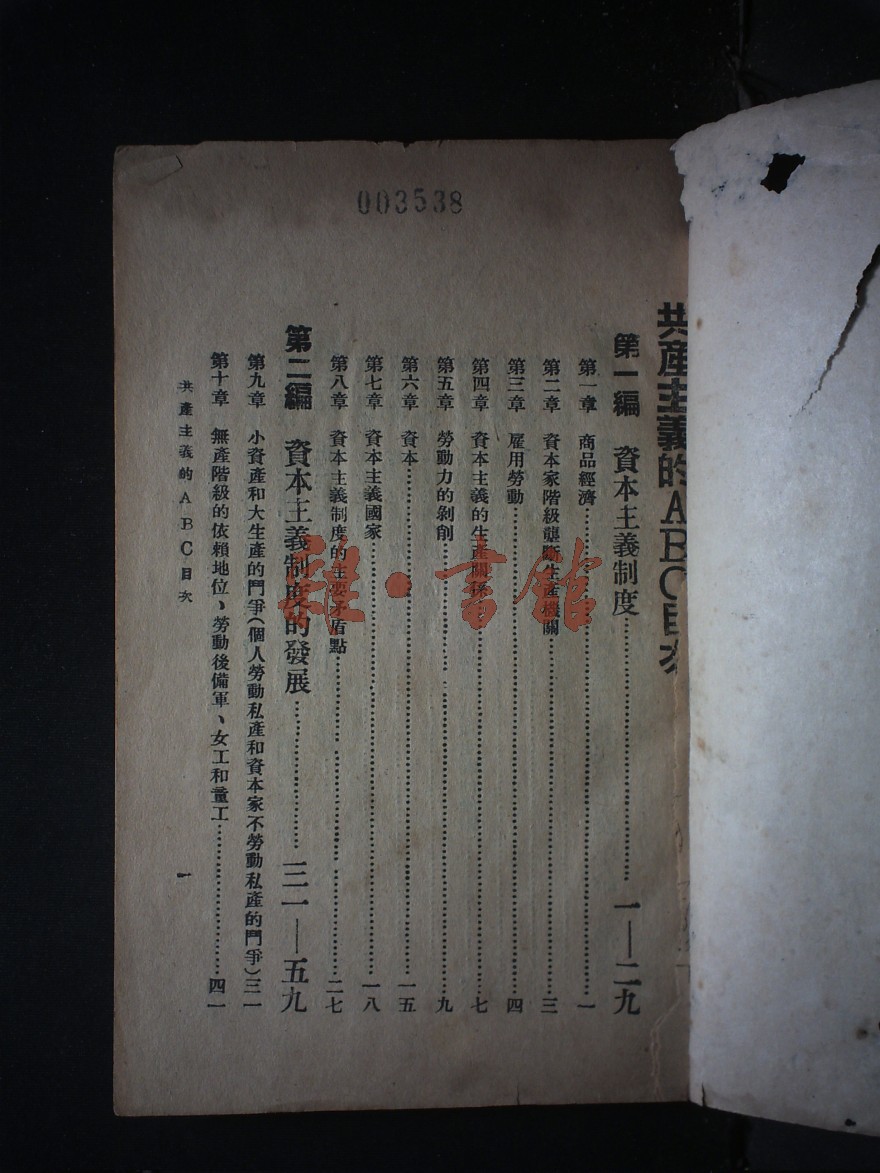 003538
共產主義的ABC目次
第一編 資本主義制度………一—二九
第一章 商品經濟………一
第二章 資本家階級壟斷生產機關………三
第三章 雇用勞動………四
第四章 資本主義的生產關係………七
第五章 勞動力的剝削………九
第六章 資本………一五
第七章 資本主義國家………一八
第八章 資本主義制度的主要矛盾點………二七
第二編 資本主義制度的發展………三一—五九
第九章 小資產和大生產的鬥爭(個人勞動私產和資本家不勞動私產的鬥爭)三一
第十章 無產階級的依賴地位、勞動後備軍、女工和童工………四一
共產主義的ABC目次
一
雜·書館